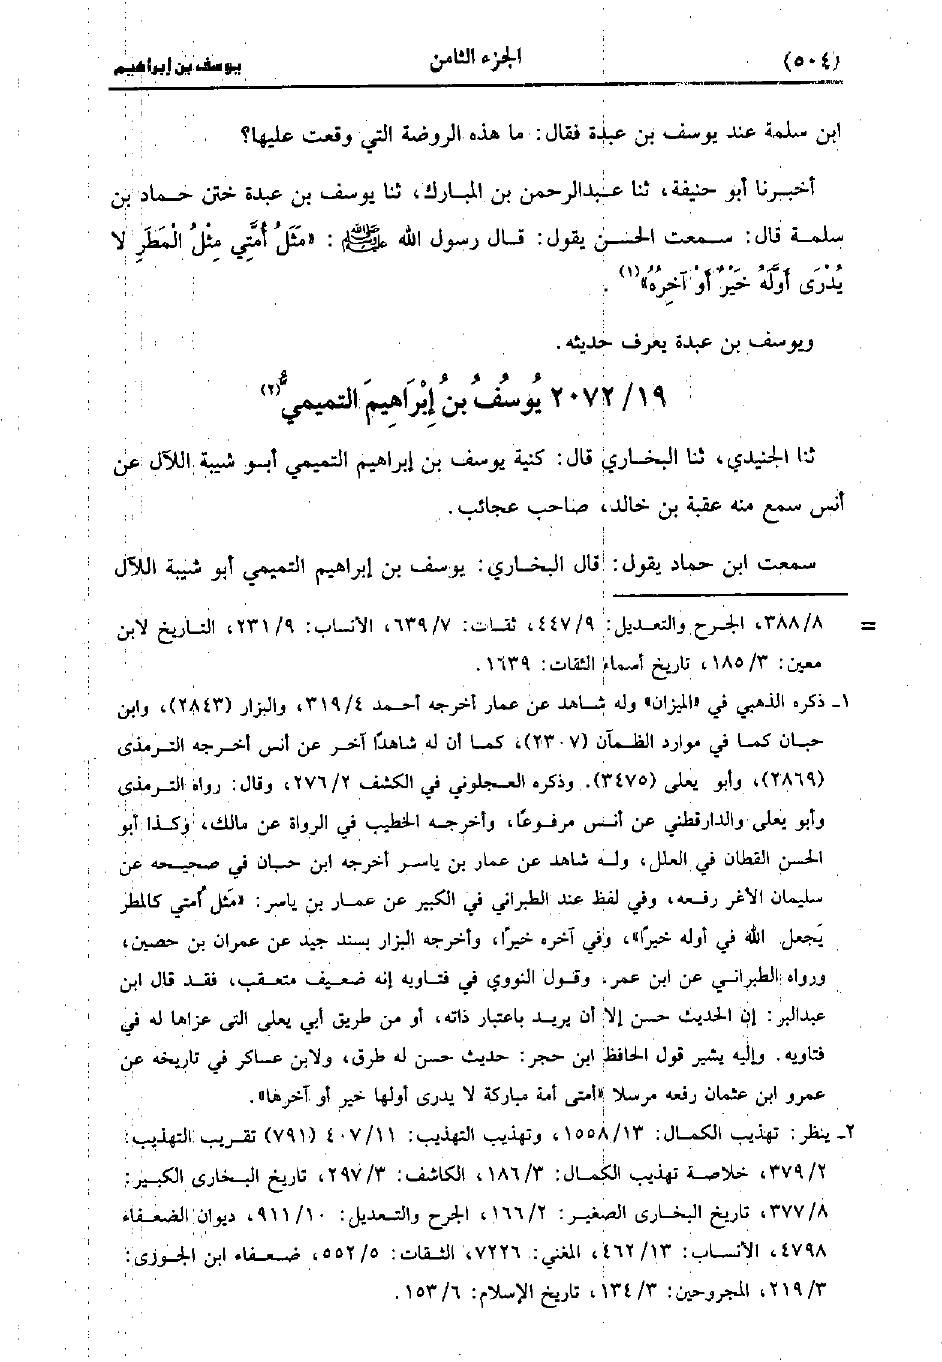 (٥٠٤) الجزء الثامن يوسف بن إبراهيم
ابن سلمة عند يوسف بن عبدة فقال: ما هذه الروضة التي وقعت عليها؟
أخبرنا أبو حنيفة، ثنا عبدالرحمن بن المبارك، ثنا يوسف بن عبدة ختن حماد بن
سلمة قال: سمعت الحسن يقول: قال رسول الله ﷺ: «مَثَلُ أُمَّتِي مِثْلُ الْمَطَرِ لَا
يُدْرَى أَوَّلُهُ خَيْرٌ أَوْ آخِرُهُ»(١).
ويوسف بن عبدة يعرف حديثه.
١٩/ ٢٠٧٢ يُوسُفُ بنُ إِبْرَاهِيمَ التميميُّ(٢)
ثنا الجنيدي، ثنا البخاري قال: كنية يوسف بن إبراهيم التميمي أبو شيبة اللآل عن
أنس سمع منه عقبة بن خالد، صاحب عجائب.
سمعت ابن حماد يقول: قال البخاري: يوسف بن إبراهيم التميمي أبو شيبة اللآل
= ٣٨٨/٨، الجرح والتعديل: ٤٤٧/٩، ثقات: ٦٣٩/٧، الأنساب: ٢٣١/٩، التاريخ لابن
معين: ١٨٥/٣، تاريخ أسماء الثقات: ١٦٣٩.
١ـ ذكره الذهبي في «الميزان» وله شاهد عن عمار أخرجه أحمد ٣١٩/٤، والبزار (٢٨٤٣)، وابن
حبان كما في موارد الظمآن (٢٣٠٧)، كما أن له شاهدًا آخر عن أنس أخرجه الترمذى
(٢٨٦٩)، وأبو يعلى (٣٤٧٥). وذكره العجلوني في الكشف ٢٧٦/٢، وقال: رواه الترمذي
وأبو يعلى والدارقطني عن أنس مرفوعًا، وأخرجه الخطيب في الرواة عن مالك، وكذا أبو
الحسن القطان في العلل، وله شاهد عن عمار بن ياسر أخرجه ابن حبان في صحيحه عن
سليمان الأغر رفعه، وفي لفظ عند الطبراني في الكبير عن عمار بن ياسر: «مَثل أمتي كالمطر
يَجعل الله في أوله خيرًا»، وفي آخره خيرًا، وأخرجه البزار بسند جيد عن عمران بن حصين،
ورواه الطبراني عن ابن عمر، وقول النووي في فتاويه إنه ضعيف متعقب، فقد قال ابن
عبدالبر: إن الحديث حسن إلا أن يريد باعتبار ذاته، أو من طريق أبي يعلى التى عزاها له في
فتاويه. وإليه يشير قول الحافظ ابن حجر: حديث حسن له طرق، ولابن عساكر في تاريخه عن
عمرو ابن عثمان رفعه مرسلا «أمتى أمة مباركة لا يدرى أولها خير أو آخرها».
٢ـ ينظر: تهذيب الكمال: ١٥٥٨/١٣، وتهذيب التهذيب: ٤٠٧/١١ (٧٩١) تقريب التهذيب:
٣٧٩/٢، خلاصة تهذيب الكمال: ١٨٦/٣، الكاشف: ٢٩٧/٣، تاريخ البخارى الكبير:
٣٧٧/٨، تاريخ البخارى الصغير: ١٦٦/٢، الجرح والتعديل: ٩١١/١٠، ديوان الضعفاء
٤٧٩٨، الأنساب: ٤٦٢/١٣، المغني: ٧٢٢٦، الثقات: ٥٥٢/٥، ضعفاء ابن الجوزى:
٢١٩/٣، المجروحين: ١٣٤/٣، تاريخ الإسلام: ١٥٣/٦.